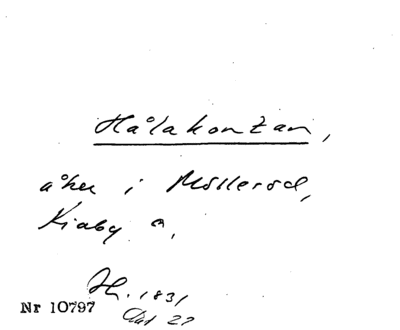 Hålakontan,
åker i Mölleröd,
Kiaby s.
H. 1831
Nr 10797